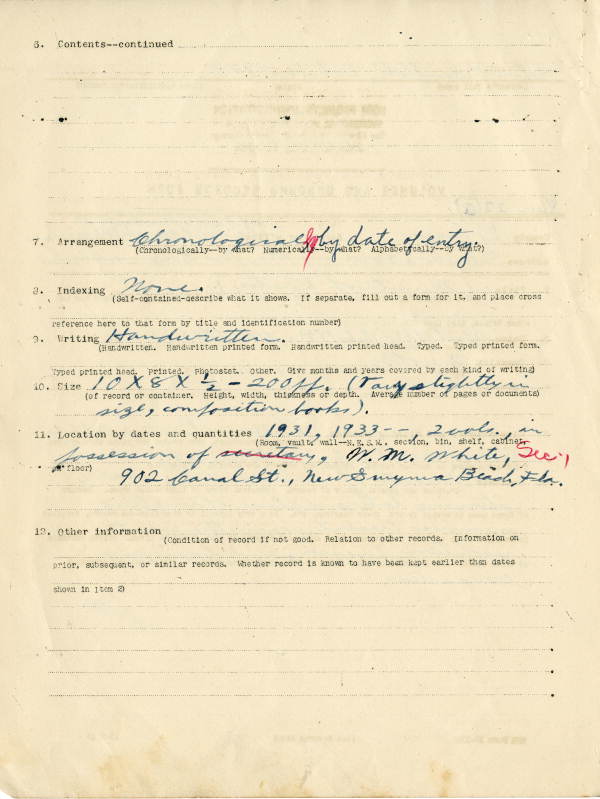 6. Contents--continued
7. Arrangement Chronologically by date of entry.
(Chronologically--by what? Numerically--by what? Alphabetically--by what?)
8. Indexing None.
(Self-contained-describe what it shows. If separate, fill out a form for it, and place cross
reference here to that form by title and identification number)
9. Writing Handwritten.
(Handwritten. Handwritten printed form. Handwritten printed head. Typed. Typed printed form.
Typed printed head. Printed. Photostat. Other. Give months and years covered by each kind of writing)
10. Size 10 X 8 X ½ - 200 pp. (Vary slightly in
(of record or container. Height, width, thickness or depth. Average number of pages or documents)
size, composition books).
11. Location by dates and quantities 1931, 1933--, 2 vols., in
(Room, vault, wall--N.E.S.W. section, bin, shelf, cabinet,
possession of secretary, W. M. White, Sec.,
or floor)
902 Canal St., New Smyrna Beach, Fla.
12. Other information
(Condition of record if not good. Relation to other records. Information on
prior, subsequent, or similar records. Whether record is known to have been kept earlier than dates
shown in Item 2)